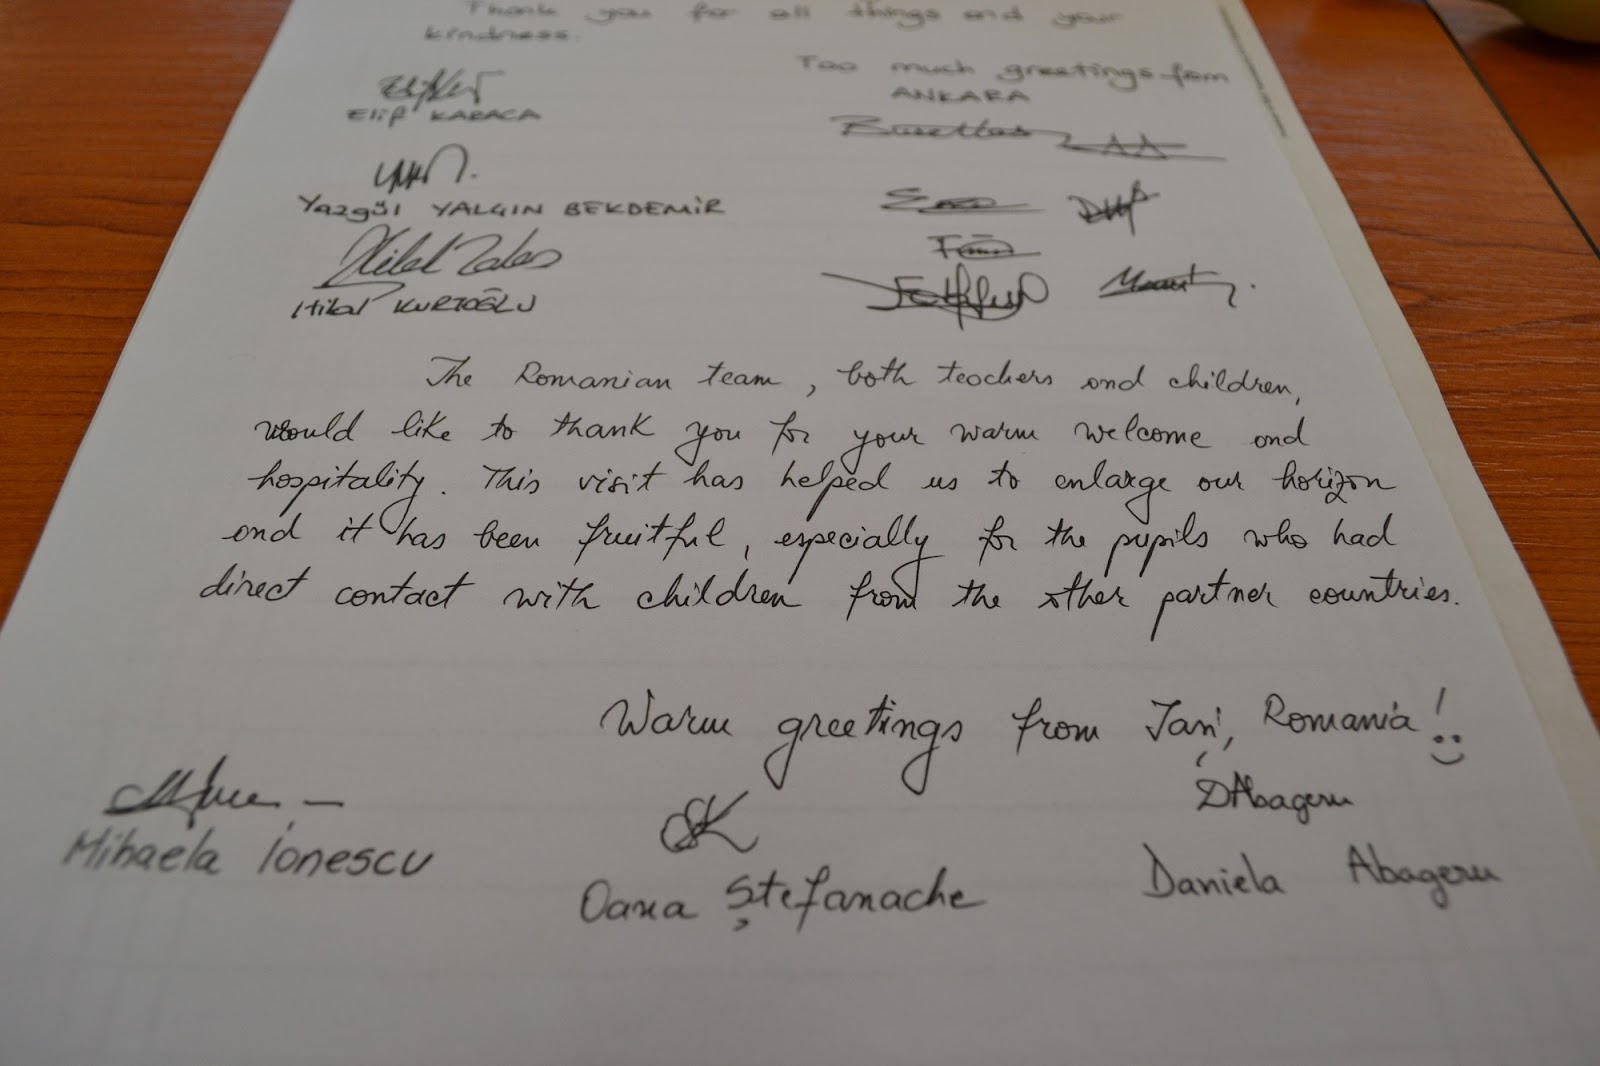 Thank you for all things and your
kindness.
Too much greetings from
ANKARA
Elif KARACA
Yazgül YALGIN BEKDEMİR
Hilal KURTOĞLU
The Romanian team, both teachers and children,
would like to thank you for your warm welcome and
hospitality. This visit has helped us to enlarge our horizon
and it has been fruitful, especially for the pupils who had
direct contact with children from the other partner countries.
Warm greetings from Iași, Romania!
DAbageru
Mihaela Ionescu
Oana Ștefanache
Daniela Abageru